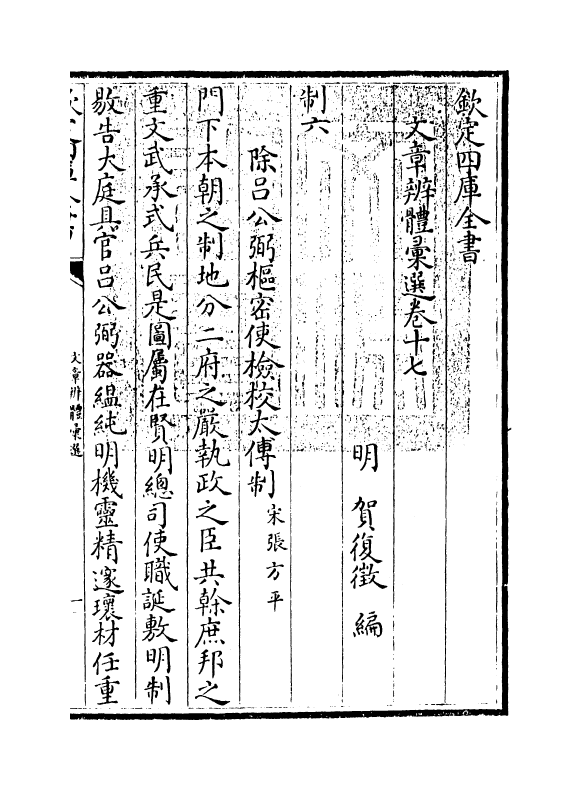 欽定四庫全書
文章辨體彙選卷十七
明 賀復徵 編
制六
除呂公弼樞密使檢校太傅制宋張方平
門下本朝之制地分二府之嚴執政之臣共幹庶邦之
重文武承式兵民是圖屬在賢明總司使職誕敷明制
敭告大庭具官呂公弼器縕純明機靈精邃瓌材任重
文章辨體彙選
一